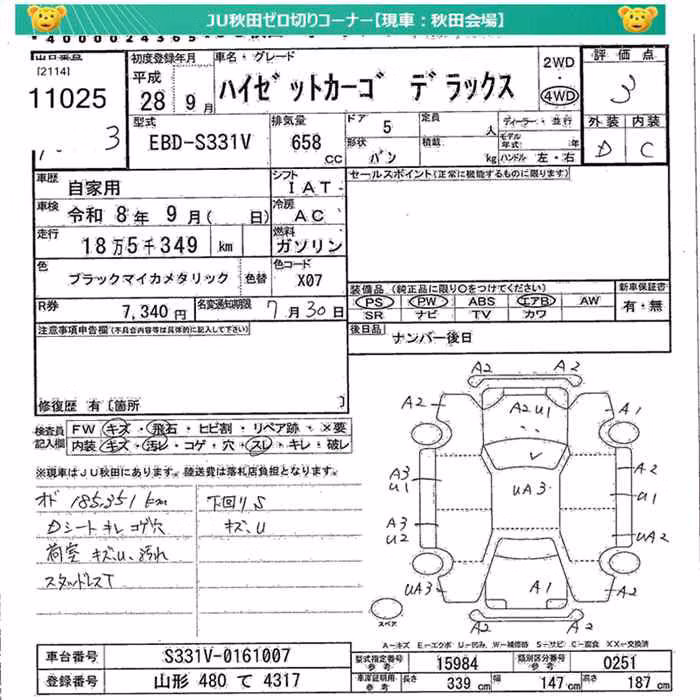 JU秋田ゼロ切りコーナー【現車：秋田会場】
出品番号
[2114]
11025
初度登録年月
平成
28年9月
車名・グレード
ハイゼットカーゴ デラックス
2WD
・
4WD
評価点
3
外装 内装
D C
3
型式
EBD-S331V
排気量
658
CC
ドア 5
形状 バン
定員 人
積載 kg
ディーラー・並行
モデル年式 年
ハンドル 左・右
車歴 自家用
シフト IAT
セールスポイント(正常に機能するものに限ります)
車検 令和8年9月( 日)
冷房 AC
走行 18万5千349 km
燃料 ガソリン
色 ブラックマイカメタリック 色替
色コード X07
装備品(純正品に限り○をつけてください)
PS PW ABS エアB AW
SR ナビ TV カワ
新車保証書
有・無
R券 7,340円
名変通知期限 7月30日
後日品 ナンバー後日
注意事項申告欄(不具合内容等は具体的に記入して下さい)
修復歴 有〔箇所 〕
検査員記入欄
FW キズ・飛石・ヒビ割・リペア跡・×要
内装 キズ・汚レ・コゲ・穴・スレ・キレ・破レ
※現車はJU秋田にあります。陸送費は落札店負担となります。
オド 185,351km
Dシート キレ コゲ穴
荷室 キズ、U、汚れ
スタッドレスT
下回りS
キズ、U
A2 A2
A2 A2U1 A1
A3 U1 UA3 A2 U1
A3 U2 UA2
UA3 A1 UA3
A2 A2
スペア
A=キズ E=エクボ U=凹み W=補修跡 S=サビ C=腐食 XX=交換済
車台番号 S331V-0161007
登録番号 山形 480 て 4317
型式指定番号 参考 15984
類別区分番号 参考 0251
車庫証明用 参考 長さ 339 cm 幅 147 cm 高さ 187 cm